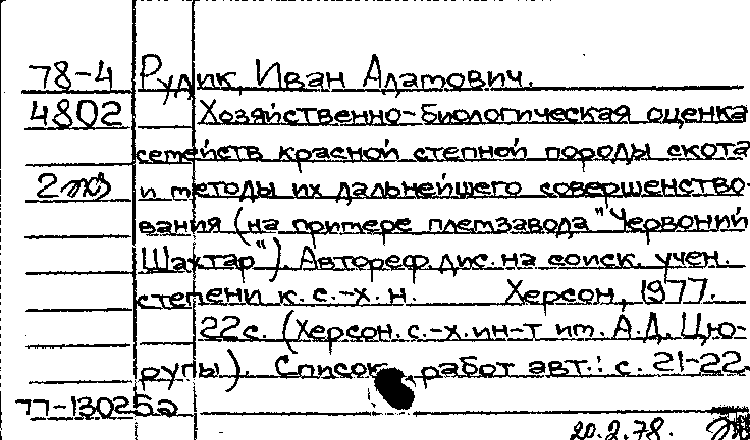 78-4 Рудик, Иван Адамович.
4802 Хозяйственно-биологическая оценка
семейств красной степной породы скота
2 экз и методы их дальнейшего совершенство-
вания (на примере племзавода "Червоний
Шахтар"). Автореф. дис. на соиск. учен.
степени к. с.-х. н. Херсон, 1977.
22 с. (Херсон. с.-х. ин-т им. А.Д. Цю-
рупы). Список работ авт.: с. 21-22.
77-13025а
20.2.78.